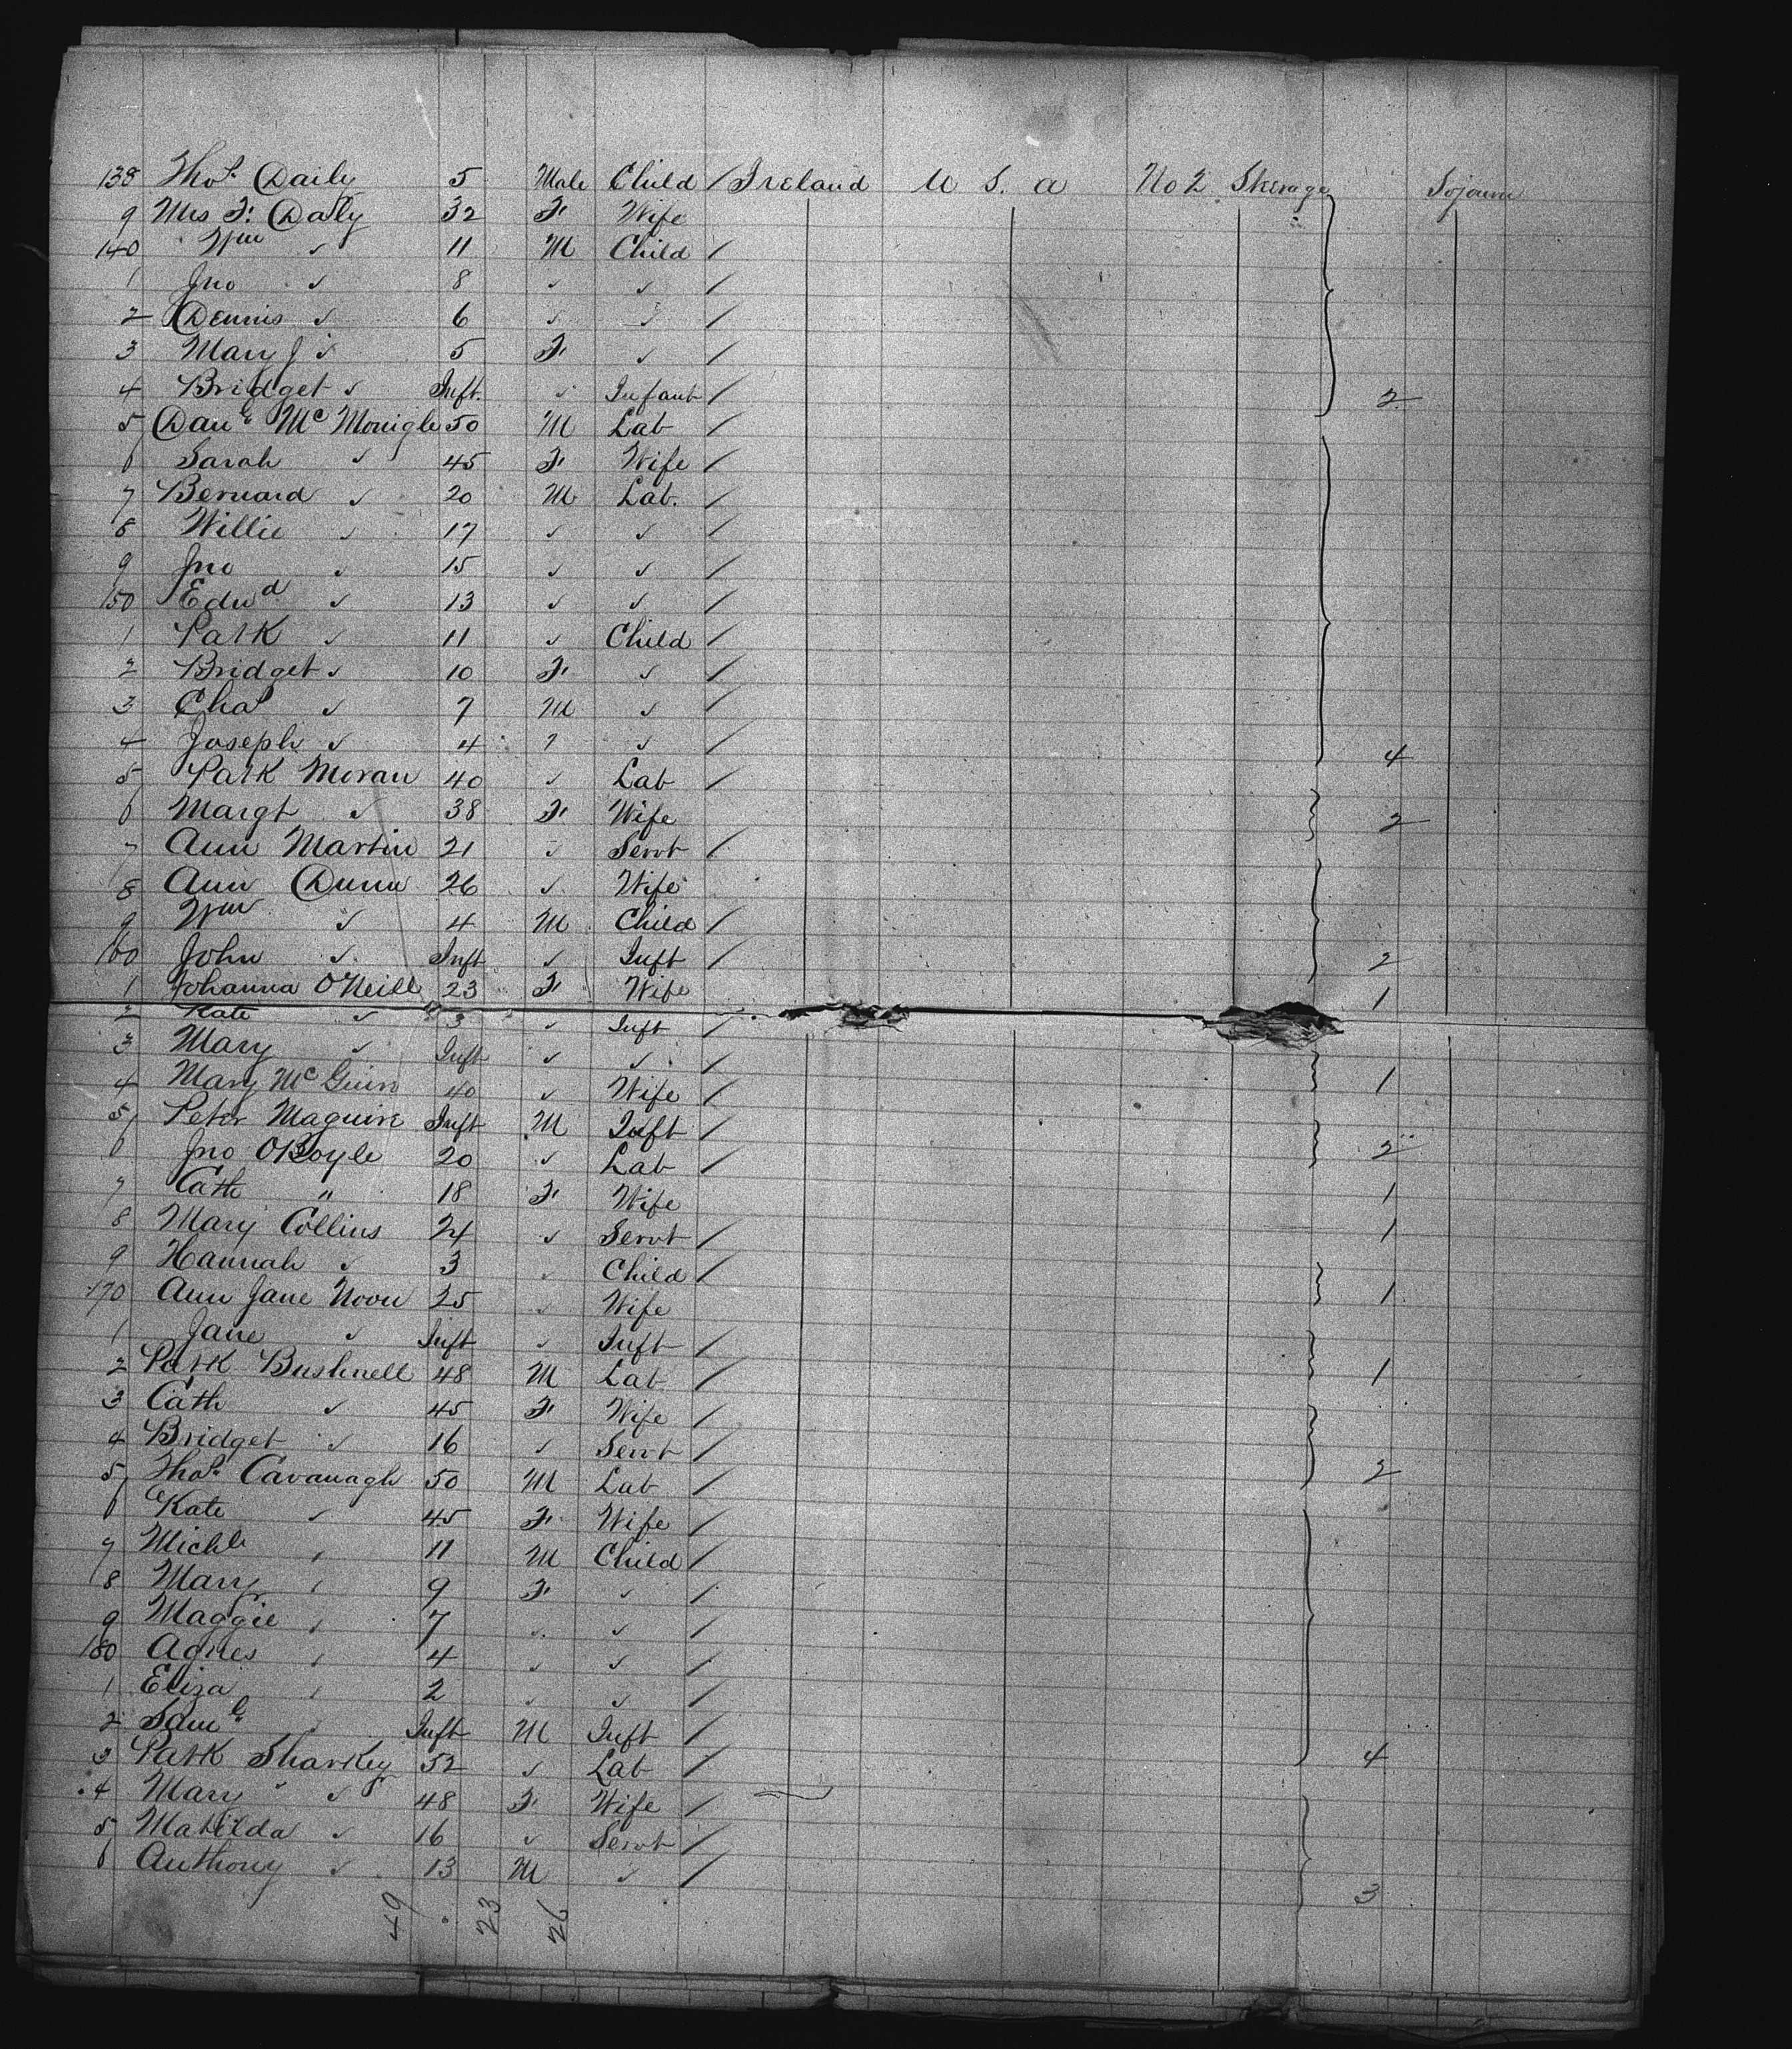 138 Thos. Daily 5 Male Child / Ireland U S. a No 2 Sterage Sojourn
9 Mrs F. Daly 32 F. Wife
140 Wm ✓ 11 M Child /
1 Jno ✓ 8 ✓ ✓ /
2 Dennis ✓ 6 ✓ ✓ /
3 Mary J ✓ 5 F. ✓ /
4 Bridget ✓ Inft. ✓ Infant / 2
5 Danl. Mc Monigle 50 M Lab /
6 Sarah ✓ 45 F. Wife /
7 Bernard ✓ 20 M Lab. /
8 Willie ✓ 17 ✓ ✓ /
9 Jno ✓ 15 ✓ ✓ /
150 Edwd ✓ 13 ✓ ✓ /
1 Patk ✓ 11 ✓ Child /
2 Bridget ✓ 10 F. ✓ /
3 Chas ✓ 7 M ✓ /
4 Joseph ✓ 4 ✓ ✓ / 4
5 Patk Moran 40 ✓ Lab /
6 Margt ✓ 38 F. Wife 2
7 Ann Martin 21 ✓ Servt /
8 Ann Dunn 26 ✓ Wife
9 Wm ✓ 4 M Child /
160 John ✓ Inft ✓ Inft / 2
1 Johanna O'Neill 23 F. Wife 1
2 Kate ✓ 3 ✓ Inft /
3 Mary ✓ Inft ✓ ✓ /
4 Mary Mc Guire 40 ✓ Wife / 1
5 Peter Maguire Inft M Inft /
6 Jno OBoyle 20 ✓ Lab / 2
7 Cath " 18 F. Wife 1
8 Mary Collins 24 ✓ Servt / 1
9 Hannah ✓ 3 ✓ Child /
170 Ann Jane Noon 25 ✓ Wife 1
1 Jane ✓ Inft ✓ Inft /
2 Patk Bushnell 48 M Lab / 1
3 Cath ✓ 45 F. Wife /
4 Bridget ✓ 16 ✓ Servt /
5 Thos. Cavanagh 50 M Lab / 2
6 Kate ✓ 45 F. Wife /
7 Michl ✓ 11 M Child /
8 Mary ✓ 9 F. ✓ /
9 Maggie ✓ 7 ✓ ✓ /
180 Agnes ✓ 4 ✓ ✓ /
1 Eliza ✓ 2 ✓ ✓ /
2 Saml. ✓ Inft M Inft /
3 Patk Sharkey 52 ✓ Lab / 4
4 Mary ✓ 48 F. Wife /
5 Matilda ✓ 16 ✓ Servt /
6 Anthony ✓ 13 M ✓ / 3
49 23 26